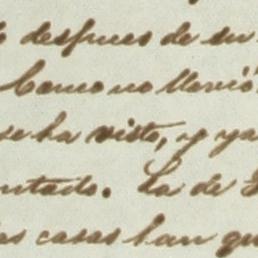 despues de su
Como no llovió
se ha visto, y ya
ntado. La de
as casas han qu